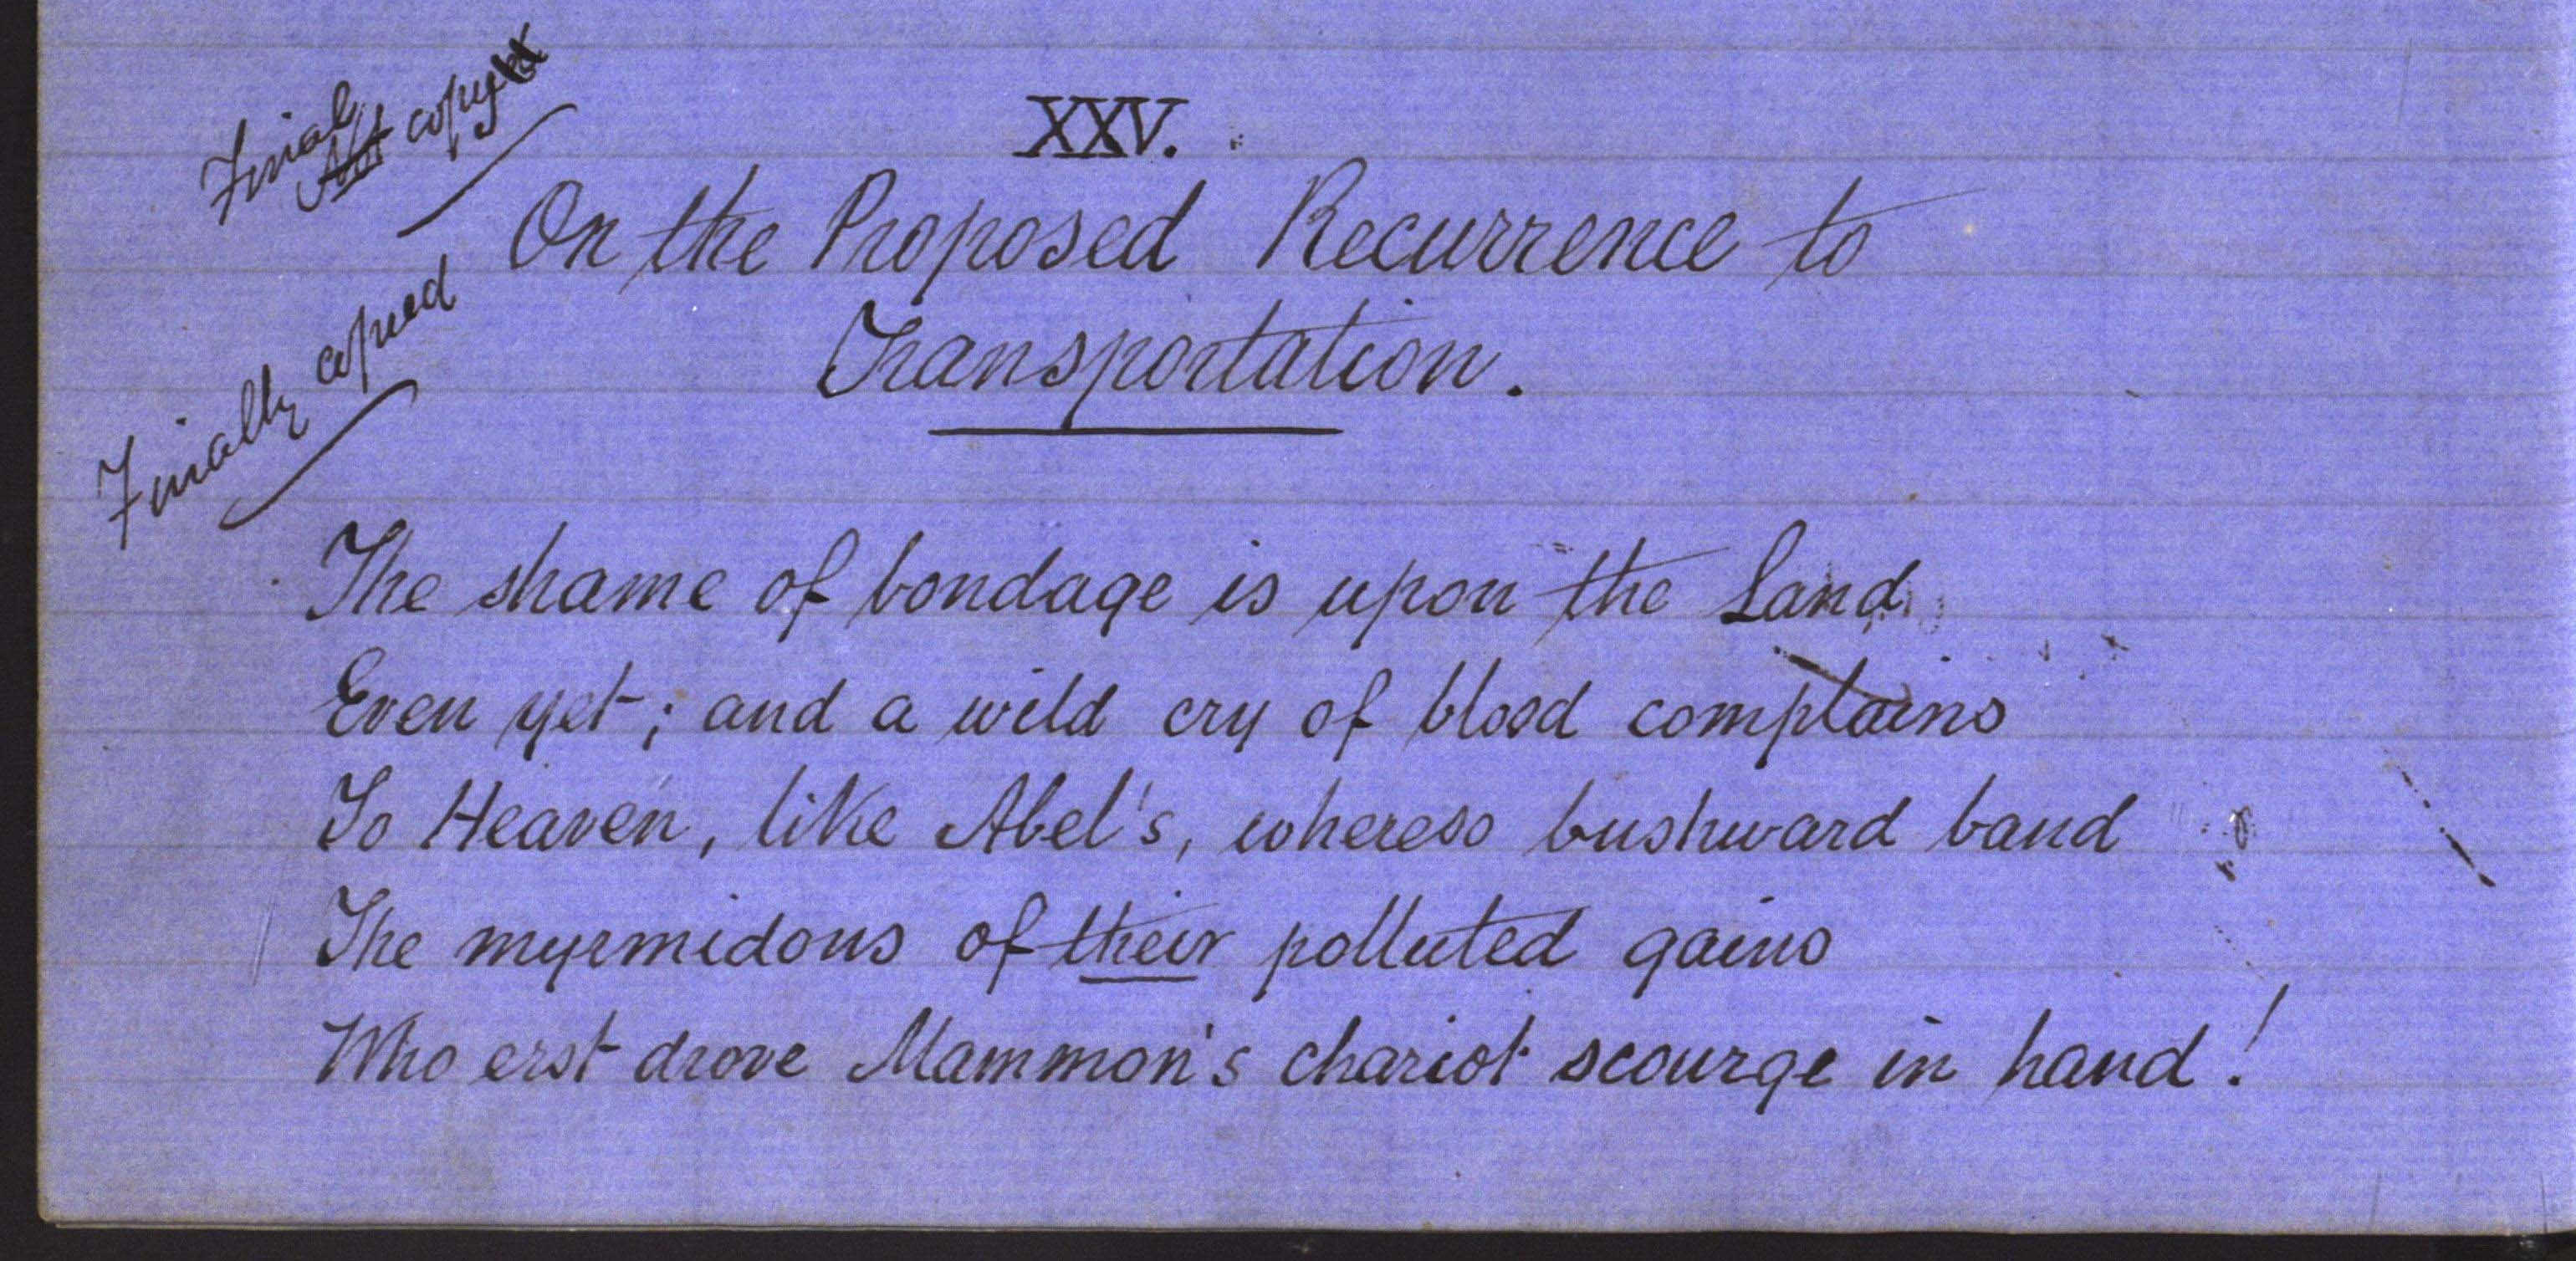 Final Not copyed
XXV.
On the Proposed Recurrence to
Transportation.
Finally copied
The shame of bondage is upon the Land
Even yet; and a wild cry of blood complains
To Heaven, like Abel's, whereso bushward band
The myrmidons of their polluted gains
Who erst drove Mammon's chariot scourge in hand!